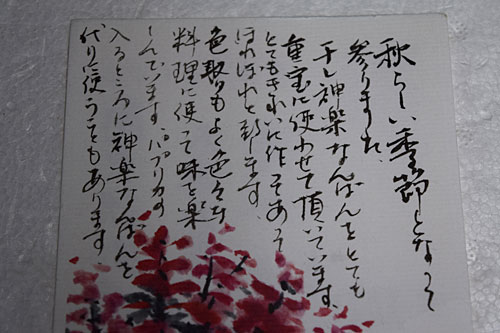 秋らしい季節となって
参りました、
干し神楽なんばんをとても
重宝に使わせて頂いています。
とてもきれいに作ってあって
ほれぼれと致します。
色取りもよく色々な
料理に使って味を楽
しんでいます パプリカの
入るところに神楽なんばんを
代りに使うこともあります